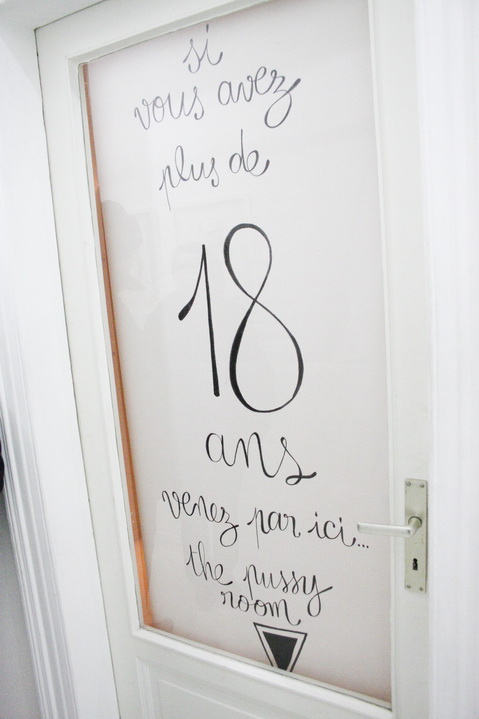 si
vous avez
plus de
18
ans
venez par ici...
the pussy
room